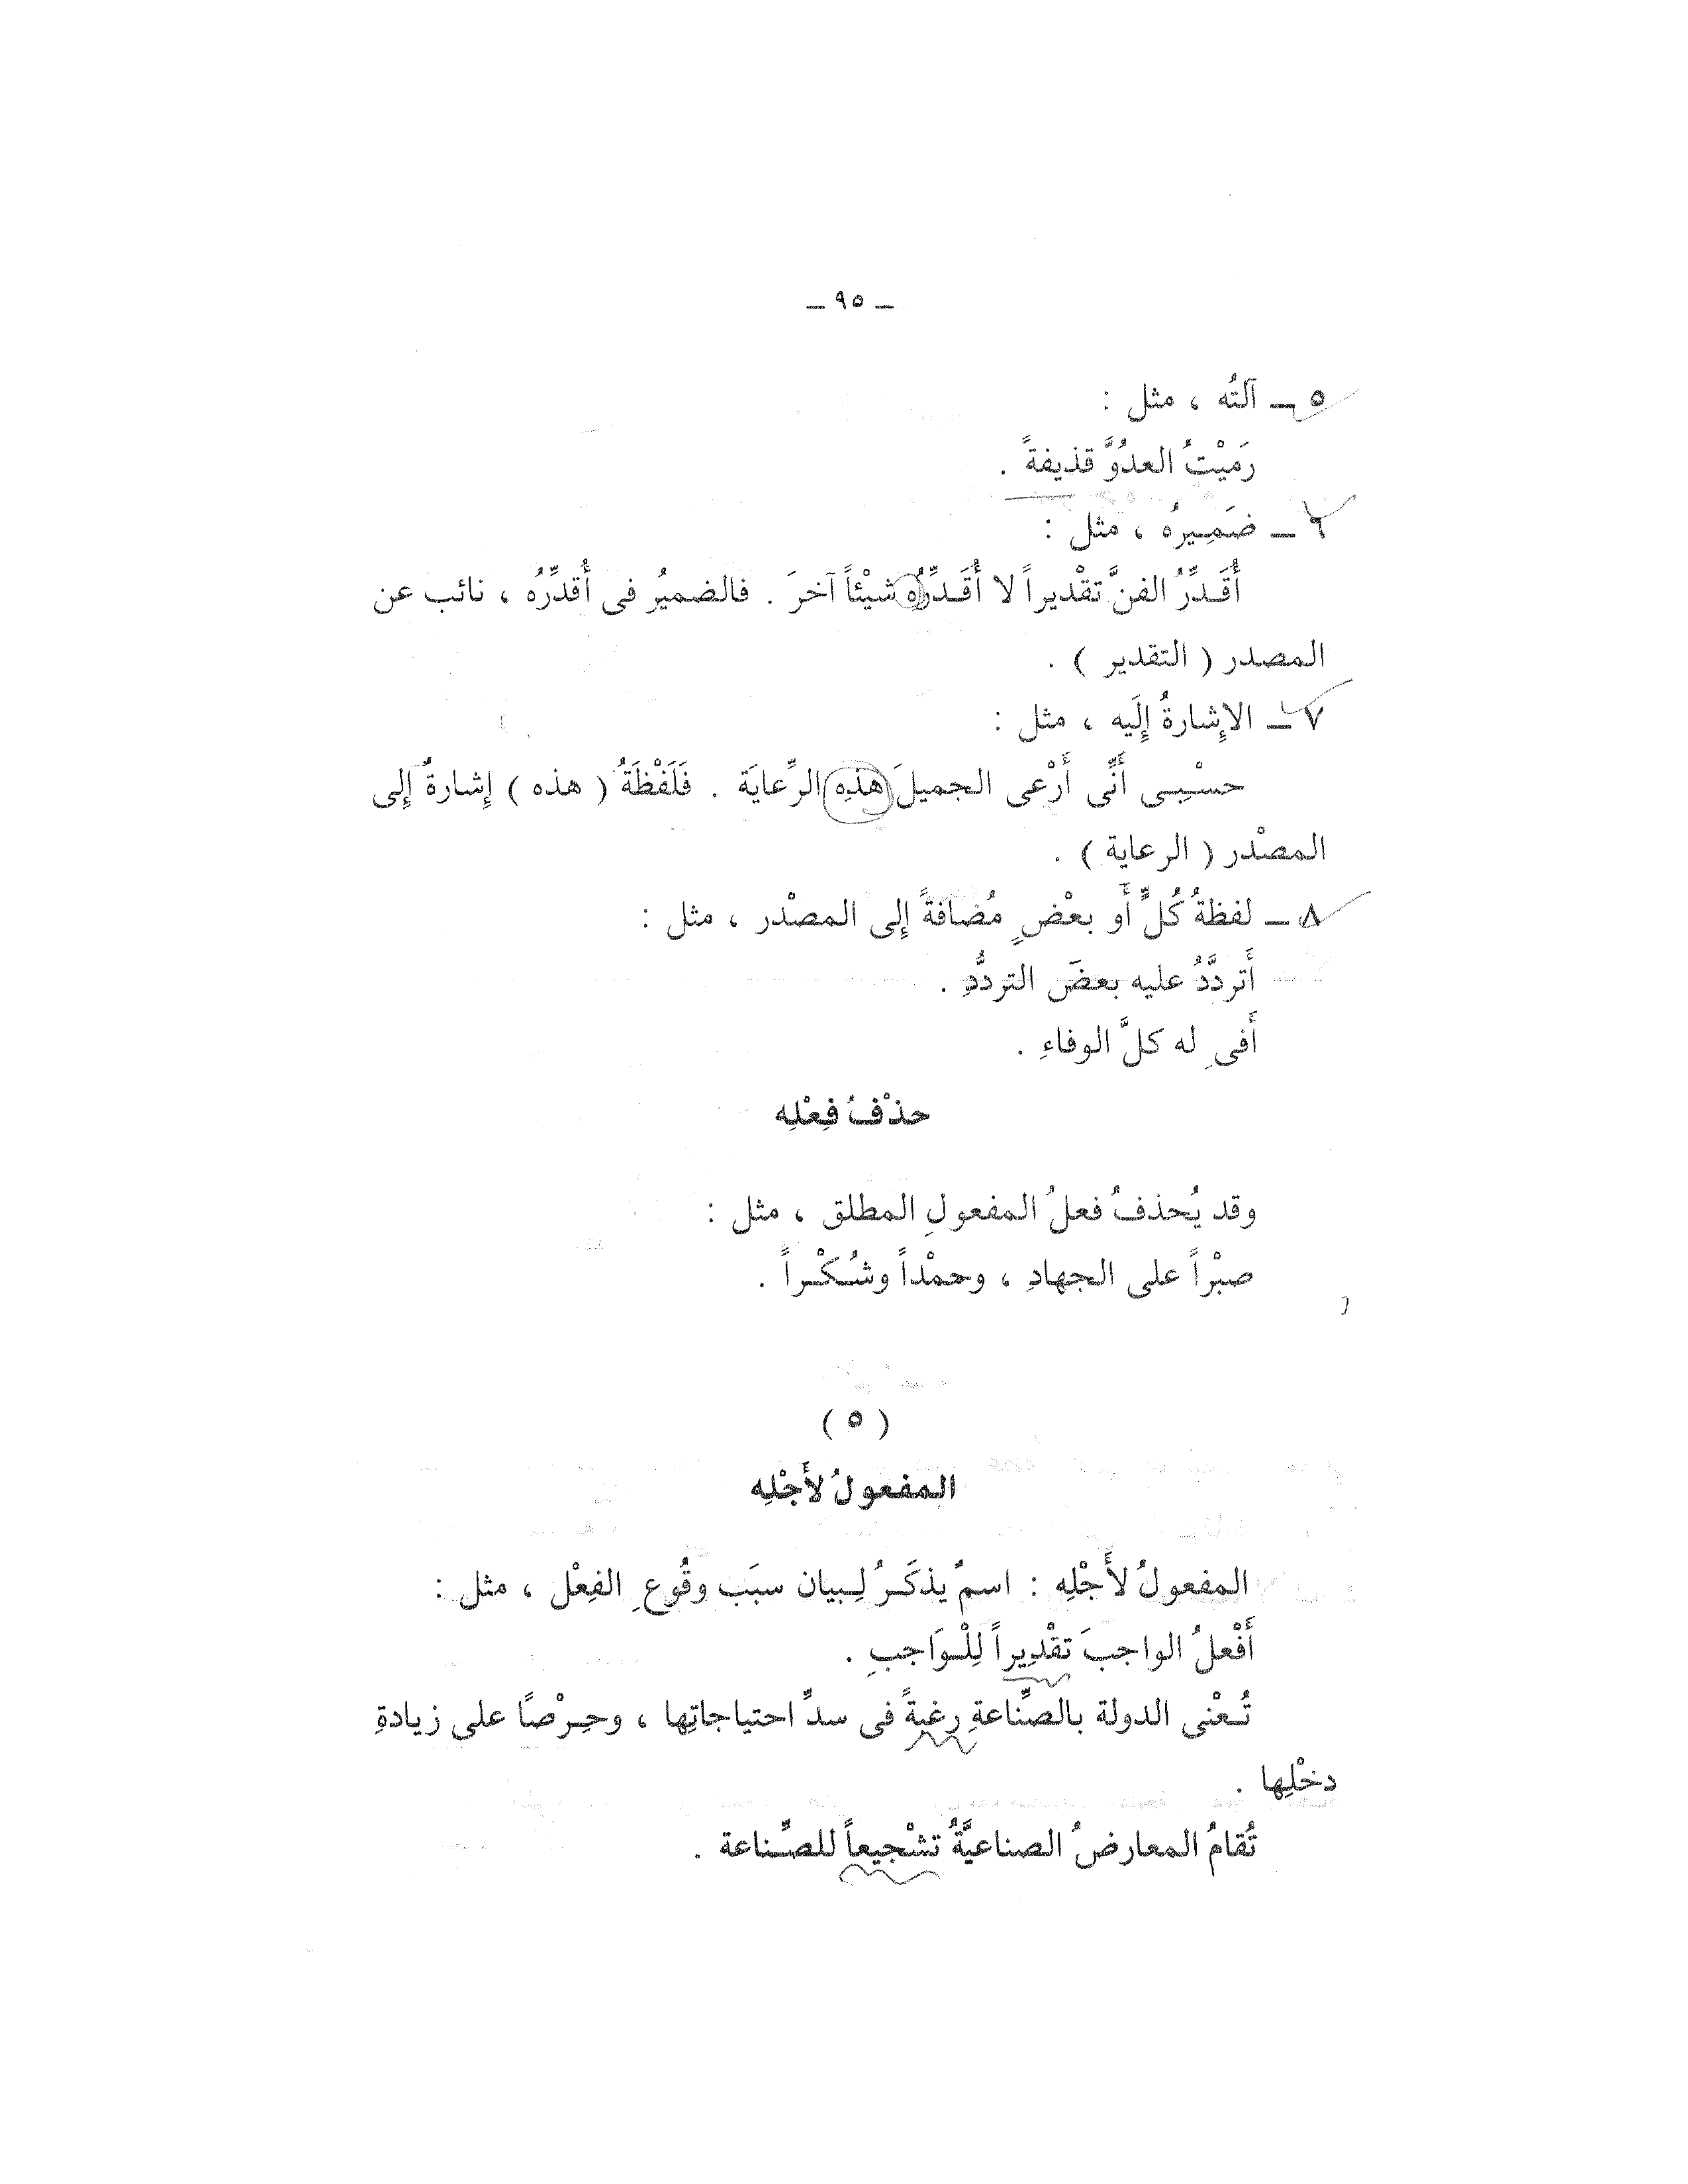 – ٩٥ –
٥ – آلتُه ، مثل :
رَميْتُ العدُوَّ قذيفةً .
٦ – ضَمِيرُه ، مثل :
أُقَـدِّرُ الفنَّ تقْديراً لا أُقَـدِّرُه شيْئاً آخرَ . فالضميرُ فى أُقدِّرُه ، نائب عن
المصدر ( التقدير ) .
٧ – الإِشارةُ إِلَيه ، مثل :
حسْبِـى أَنِّى أَرْعى الجميلَ هذِه الرِّعايَة . فَلَفْظَةُ ( هذه ) إِشارةٌ إِلى
المصْدر ( الرعاية ) .
٨ – لفظةُ كُلٍّ أَو بعْضٍ مُضافةً إِلى المصْدر ، مثل :
أَتردَّدُ عليه بعضَ التردُّدِ .
أَفىِ له كلَّ الوفاءِ .
حذْفُ فِعْلِه
وقد يُحذفُ فعلُ المفعولِ المطلق ، مثل :
صبْراً على الجهادِ ، وحمْداً وشُـكْـراً .
( ٥ )
المفعولُ لأَجْلِه
المفعولُ لأَجْلِه : اسمٌ يذكَـرُ لِـبيان سبَب وقُوعِ الفِعْل ، مثل :
أَفْعلُ الواجبَ تقْدِيراً لِلْـوَاجبِ .
تُـعْنى الدولة بالصِّناعةِ رغبةً فى سدِّ احتياجاتِها ، وحِـرْصًا على زيادةِ
دخْلِها .
تُقامُ المعارضُ الصناعيَّةُ تشْجيعاً للصِّـناعة .